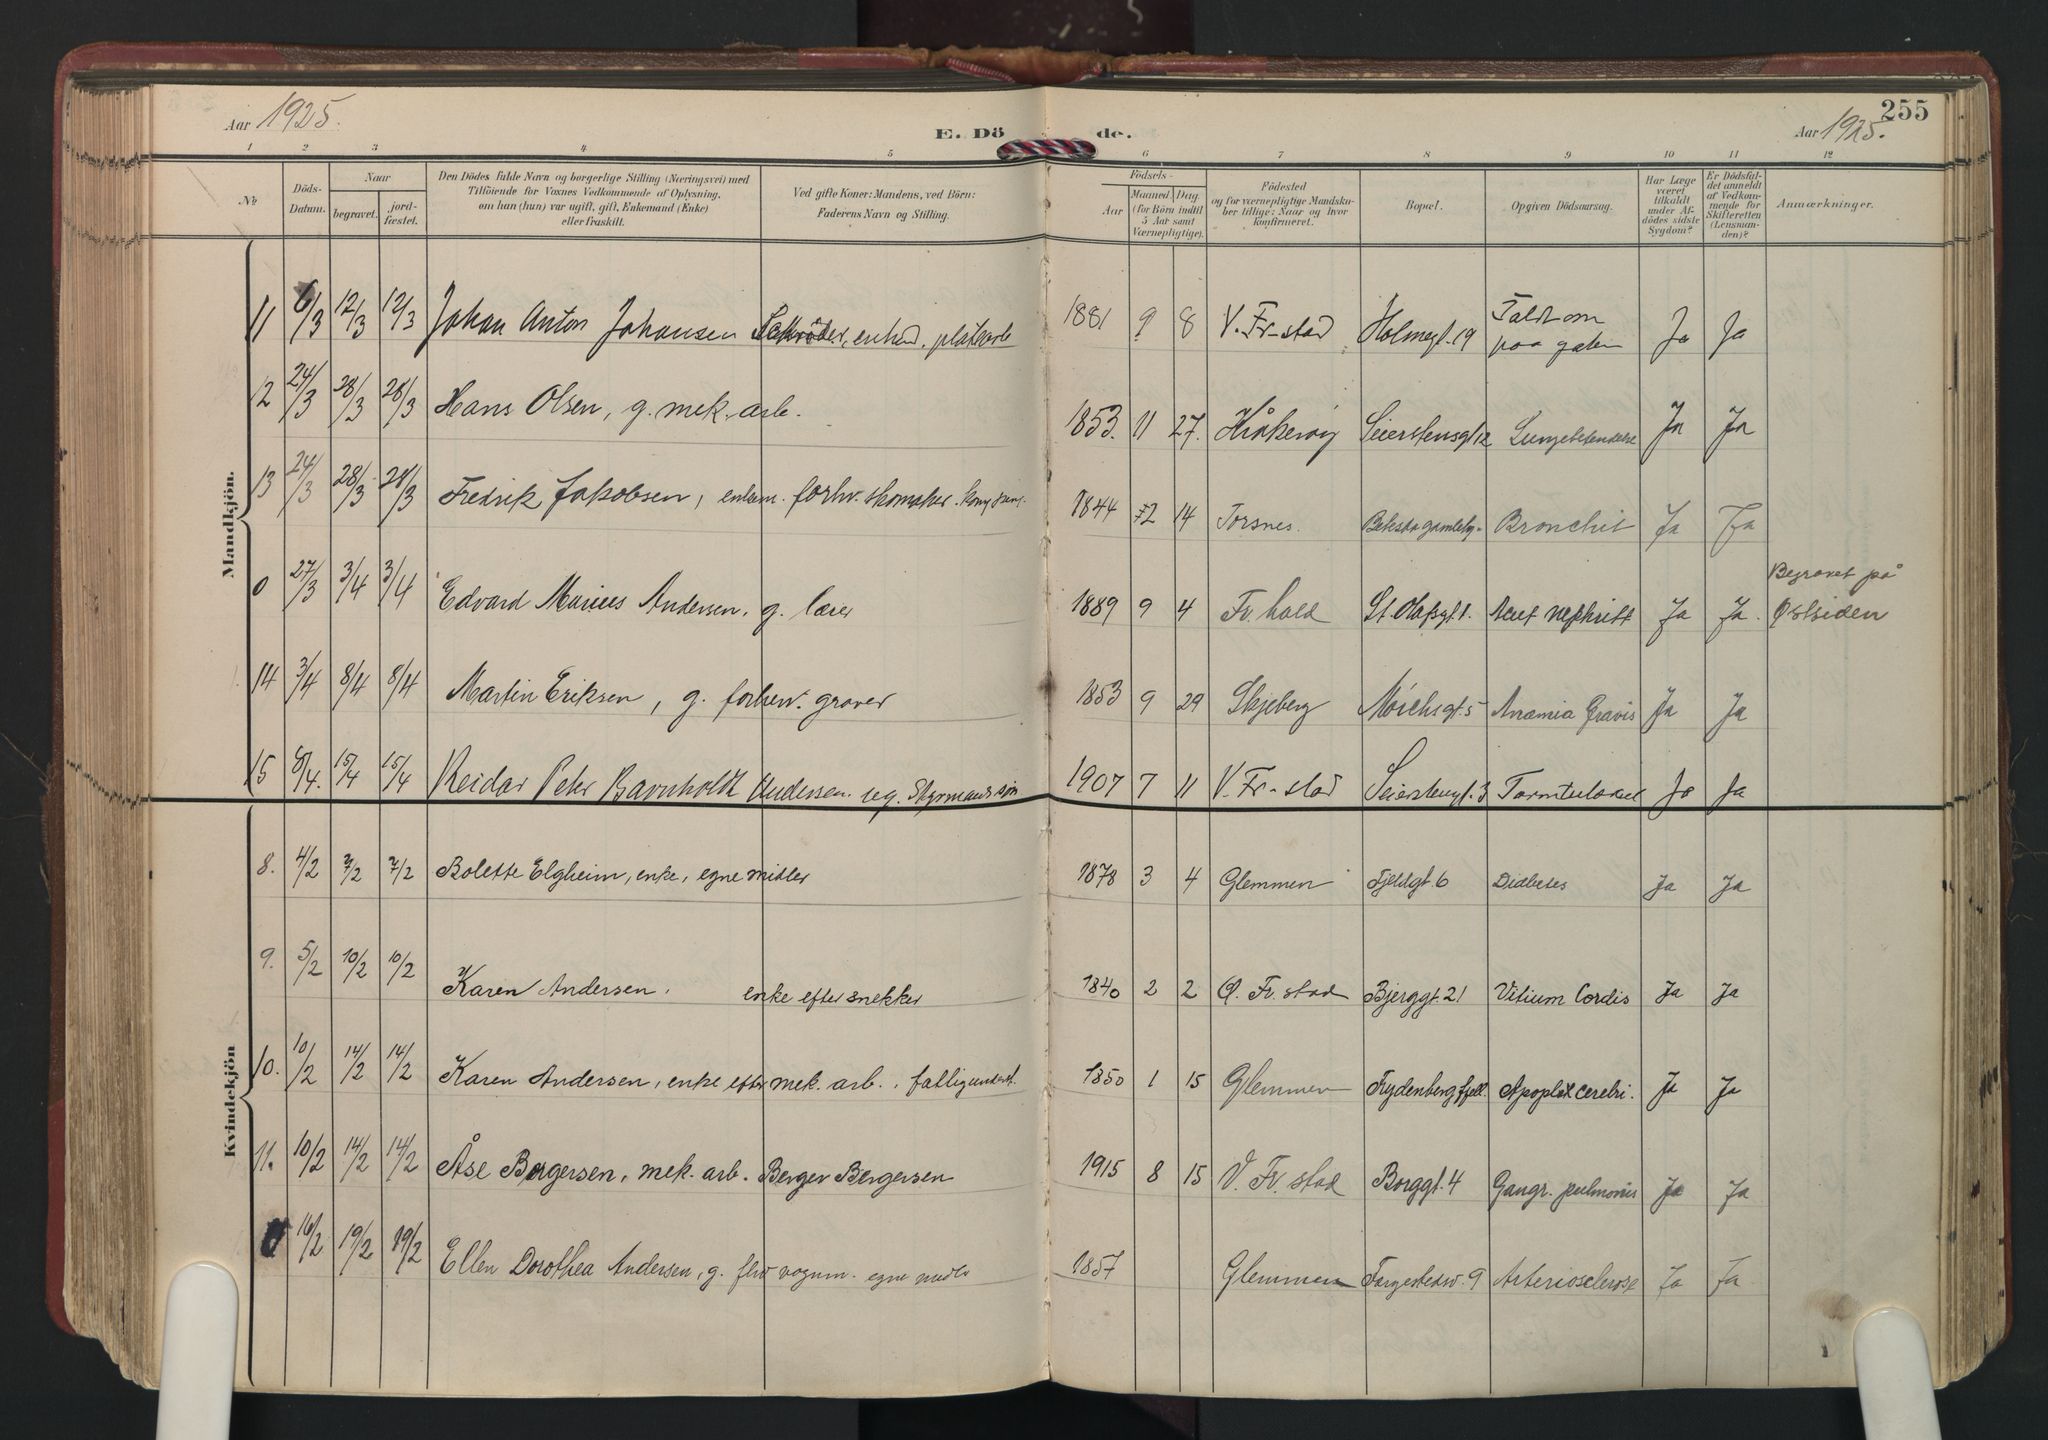 255
Aar 1925.
E. Dö de.
Aar 1925.
1 2 3 4 5 6 7 8 9 10 11 12
№
Döds-
Datum.
Naar
begravet.
jord-
fæstet.
Den Dödes fulde Navn og borgerlige Stilling (Næringsvei) med
Tilföiende for Voxnes Vedkommende af Oplysning,
om han (hun) var ugift, gift, Enkemand (Enke)
eller fraskilt.
Ved gifte Koner: Mandens, ved Börn:
Faderens Navn og Stilling.
Födsels-
Aar
Maaned. Dag.
(for Börn indtil
5 Aar samt
Værnepligtige).
Födested
og for værnepligtige Mandsku-
ber tillige: Naar og hvor
konfirmeret.
Bopæl.
Opgiven Dödsaarsag.
Har Læge
været
tilkaldt
under Af-
dödes sidste
Sygdom?
Er Dödsfal-
det anmeldt
af Vedkom-
mende for
Skifteretten
(Lensman-
den)?
Anmærkninger.
Mandkjön.
11 6/3 12/3 12/3 Johan Anton Johansen enked. 1881 9 8 V. Fr-stad Holmegt. 19 Faldt om
paa gaten Ja Ja
12 24/3 28/3 28/3 Hans Olsen, g. mek. arb. 1853. 11 27. Seierstensgt 12 Ja Ja
13 24/3 28/3 28/3 Fredrik Jakobsen, enkem. forhv. skomaker. 1844 2 14 Torsnes. Bronchit Ja Ja
Begravet på
0 27/3 3/4 3/4 Edvard Marius Andersen, g. lærer 1889 9 4 Fr. hald St. Olafsgt. 1. Acut Nephritt Ja Ja. Østsiden
14 3/4 8/4 8/4 Martin Eriksen, g. forhenv. graver 1853 9 29 Skjeberg gt. 5 Anæmia Gravis Ja Ja
15 8/4. 15/4 15/4 Reidar Peter Barnholdt Andersen. Styrmanssøn 1907 7 11 V. Fr-stad Seierstengt. 3 Ja Ja
Kvindekjön
8. 4/2 7/2 7/2 Bolette Elgheim, enke, egne midler 1878 3 4 Glemmen Fjeldgt. 6 Diabetes Ja Ja
9. 5/2 10/2 10/2 Karen Andersen. enke efter snekker 1840 2 2 Ø. Fr. stad Bjerggt. 21 Vitium Cordis Ja Ja
10. 10/2 14/2 14/2 Karen Andersen, enke efter mek. arb., fattigunderst. 1850 1 15 Glemmen Frydenberg fjell. Apoplex cerebri. Ja Ja
11. 10/2 14/2 14/2 Åse Borgersen, mek. arb. Berger Borgersen 1915 8 15 V. Fr. stad Borggt. 4 Gangr. pulmonis Ja Ja
16/2 19/2 19/2 Ellen Dorothea Andersen, g. egne midler 1857 Glemmen 9 Arteriosclerose Ja Ja